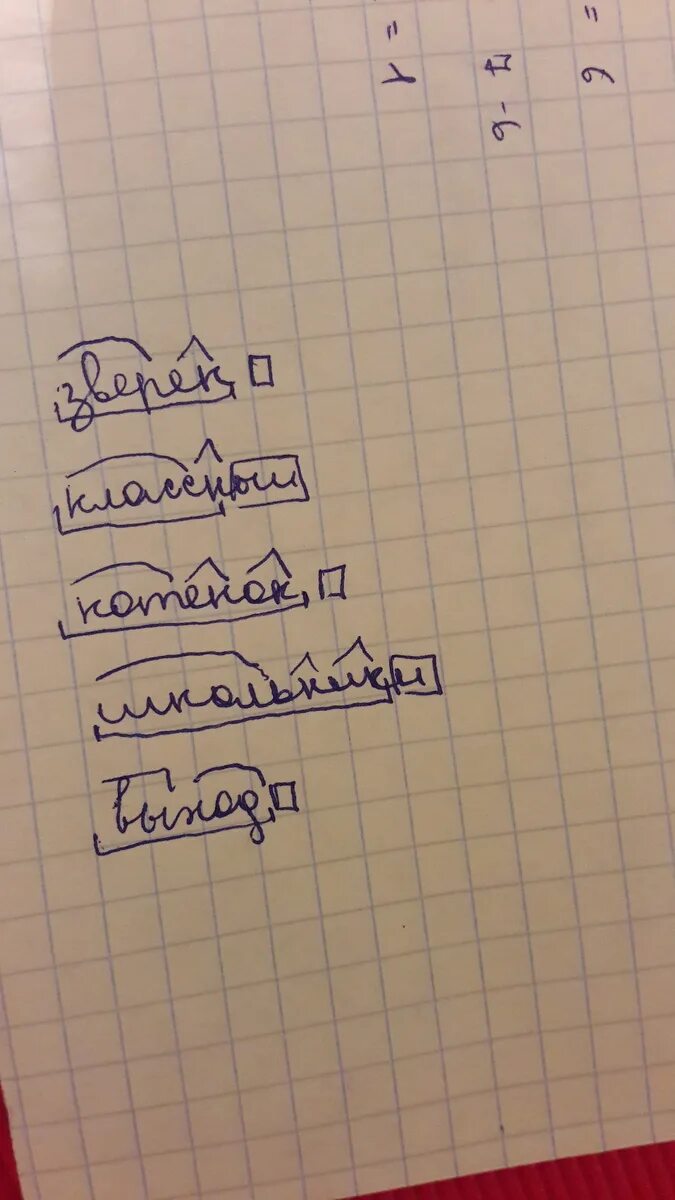 зверек
классный
котенок
школьники
выход